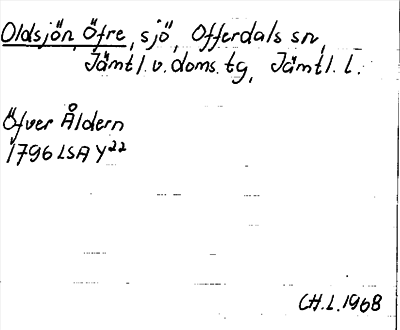 Oldsjön, Öfre, sjö, Offerdals sn,
Jämtl. v. doms. tg, Jämtl. l.
Öfver Åldern
1796 LSA Y22
CH.L. 1968